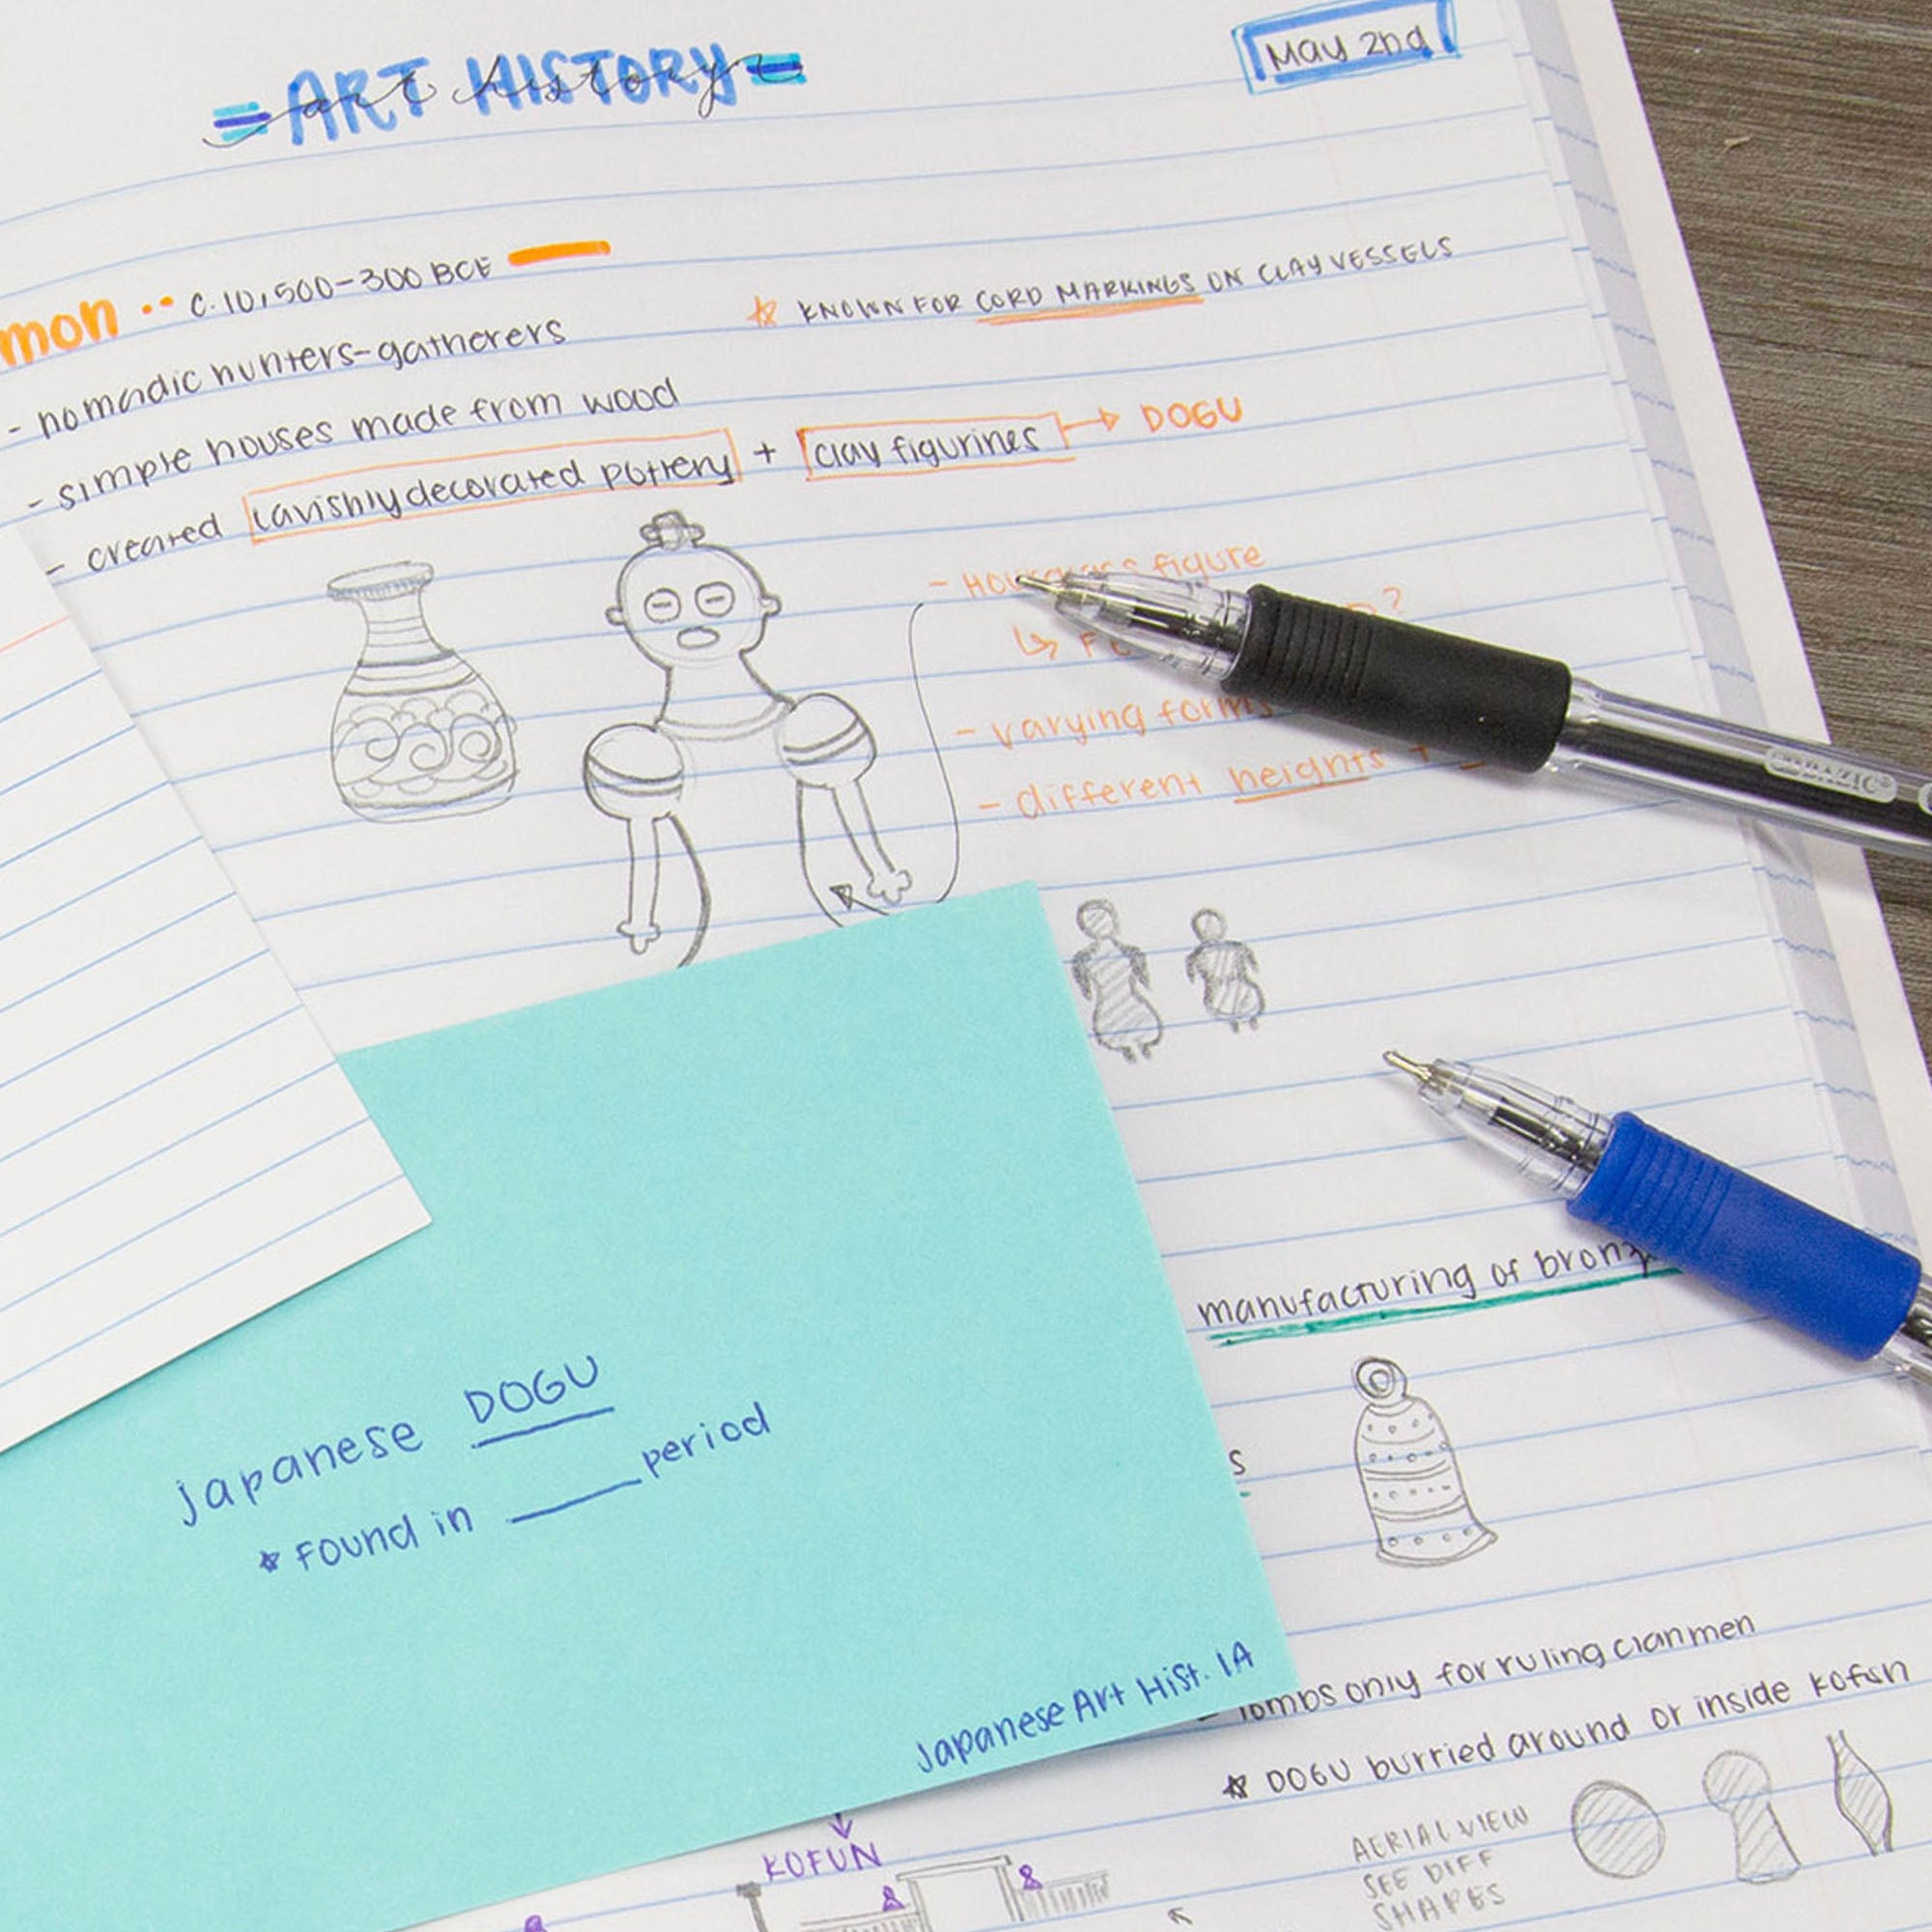 ART HISTORY
art history
May 2nd
mon •• C. 10,500-300 BCE
☆ KNOWN FOR CORD MARKINGS ON CLAY VESSELS
- nomadic hunters-gatherers
- simple houses made from wood
- created lavishly decorated pottery + clay figurines → DOGU
- figure
- varying forms
- different heights +
manufacturing of
s
Japanese DOGU
☆ FOUND in ____ period
Japanese Art Hist. 1A
- Tombs only for ruling clanmen
☆ DOGU burried around or inside kofun
AERIAL VIEW
SEE DIFF
SHAPES
KOFUN